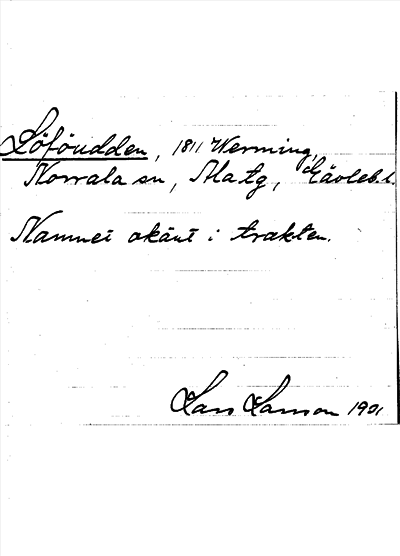 Löföudden, 1811 Werming,
Norrala sn, Ala tg, Gävleb. l.
Namnet okänt i trakten.
Lars Larsson 1901